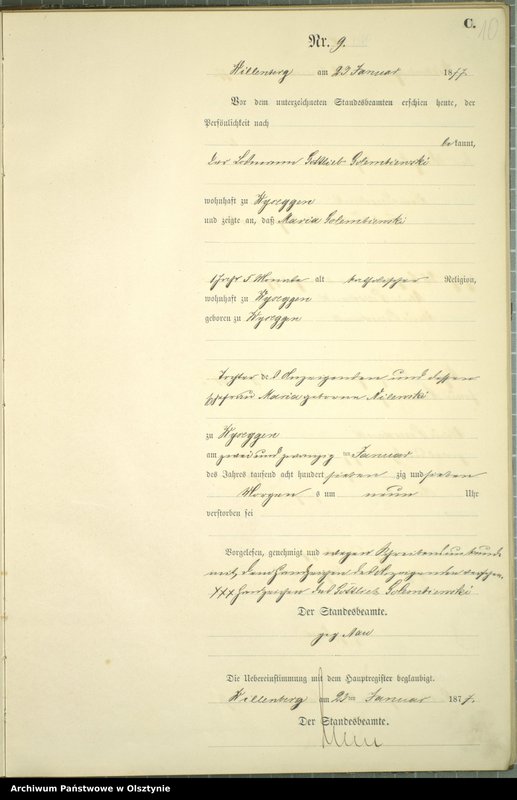 C.
10
Nr. 9.
Willenberg am 23 Januar 1877.
Vor dem unterzeichneten Standesbeamten erschien heute, der
Persönlichkeit nach
bekannt,
der Losmann Gottlieb Golembiewski
wohnhaft zu Wyseggen
und zeigte an, daß Maria Golembiewski
1 Jahr 5 Monate alt katholischer Religion,
wohnhaft zu Wyseggen
geboren zu Wyseggen
Tochter des Anzeigenden und dessen
Ehefrau Maria geborne Milewski
zu Wyseggen
am zwei und zwanzig ten Januar
des Jahres tausend acht hundert sieben zig und sieben
Morgen s um neun Uhr
verstorben sei
Vorgelesen, genehmigt und wegen Schreibensunkunde
mit dem Handzeichen des Anzeigenden versehen.
XXX Handzeichen des Gottlieb Golembiewski
Der Standesbeamte.
gez Nau
Die Uebereinstimmung mit dem Hauptregister beglaubigt.
Willenberg am 23 ten Januar 1877.
Der Standesbeamte.
Archiwum Państwowe w Olsztynie